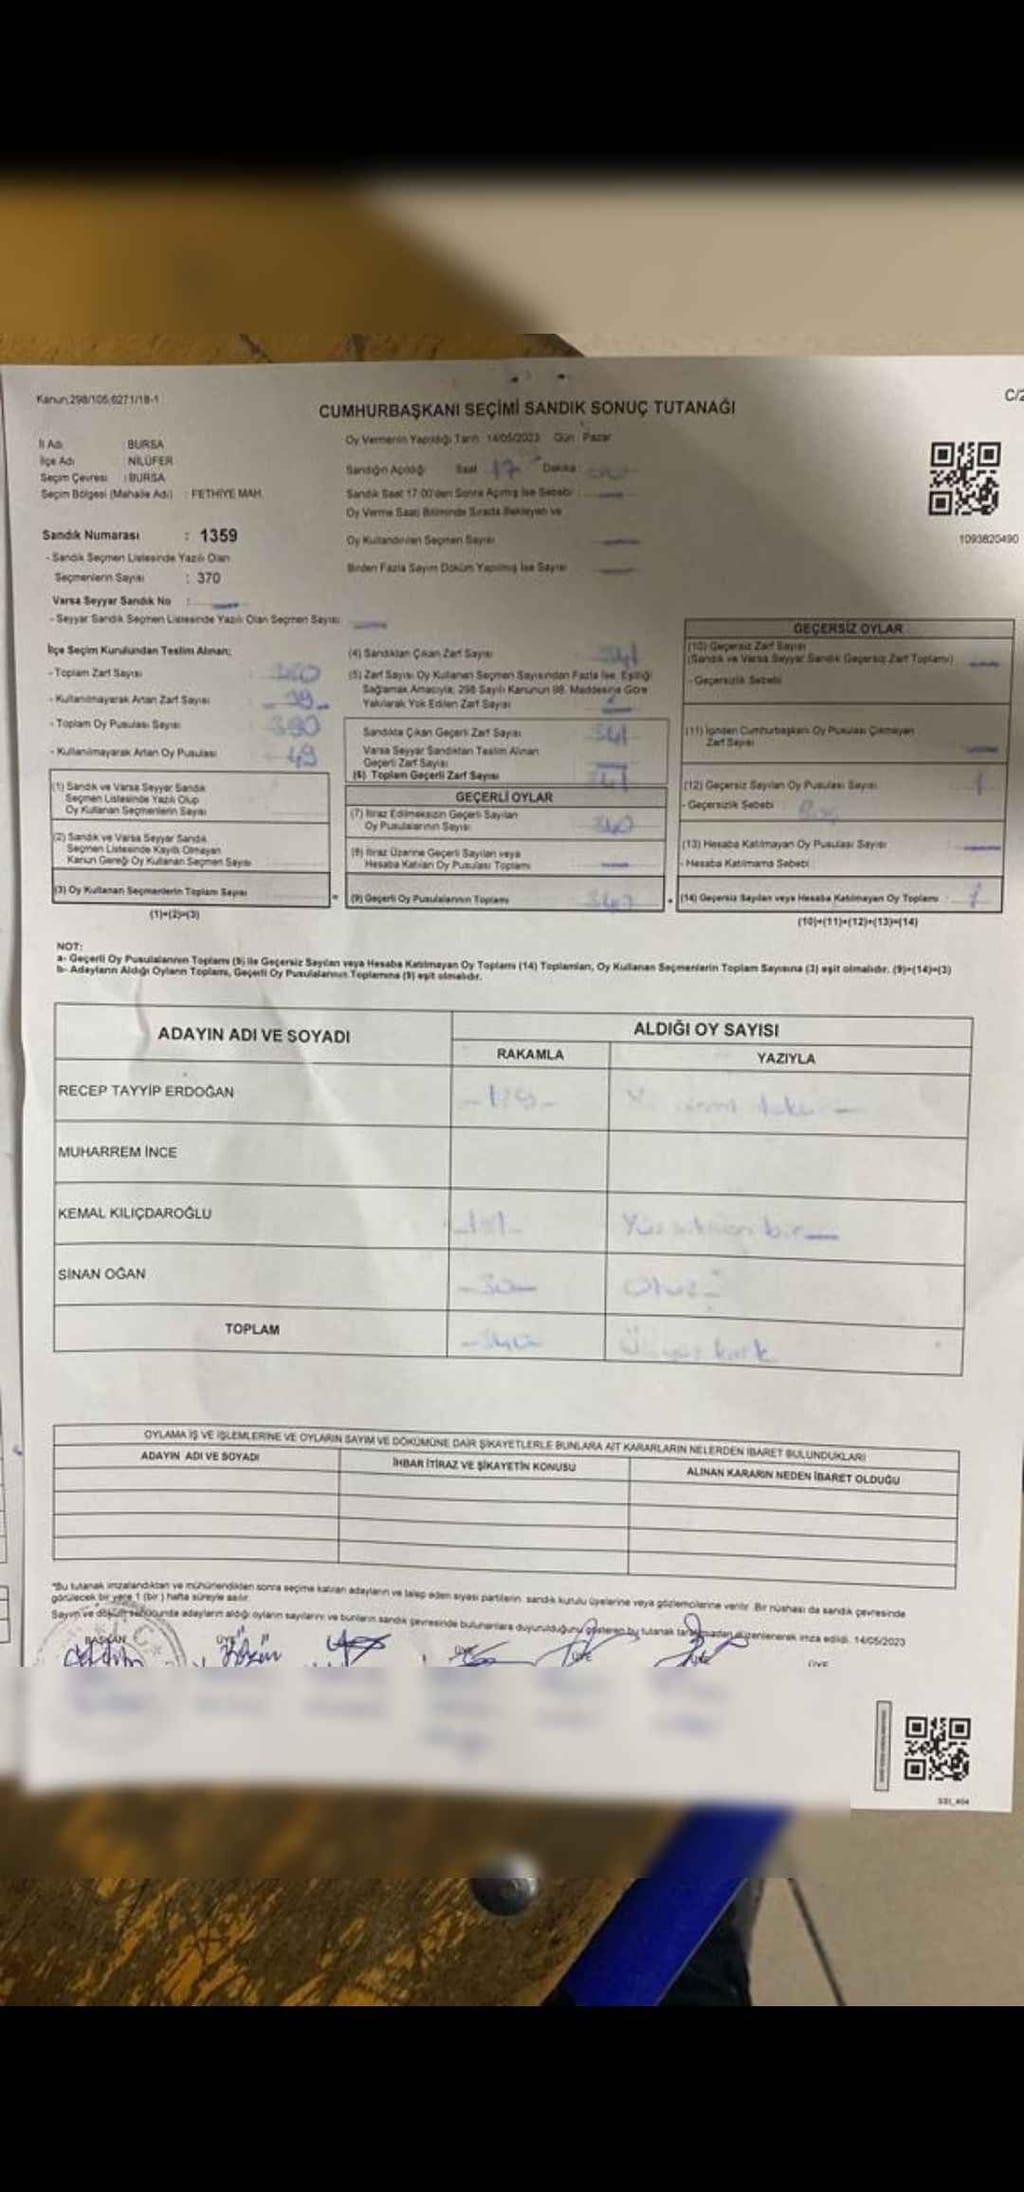 Kanun;298/105;6271/18-1
C/2
CUMHURBAŞKANI SEÇİMİ SANDIK SONUÇ TUTANAĞI
İl Adı : BURSA
İlçe Adı : NİLÜFER
Seçim Çevresi : BURSA
Seçim Bölgesi (Mahalle Adı) : FETHİYE MAH.
Sandık Numarası : 1359
- Sandık Seçmen Listesinde Yazılı Olan
Seçmenlerin Sayısı : 370
Varsa Seyyar Sandık No :
- Seyyar Sandık Seçmen Listesinde Yazılı Olan Seçmen Sayısı:
Oy Vermenin Yapıldığı Tarih 14/05/2023 Gün : Pazar
Sandığın Açıldığı Saat 17 Dakika
Sandık Saat 17:00'den Sonra Açımış İse Sebebi :
Oy Verme Saati Bitiminde Sırada Bekleyen ve
Oy Kullandırılan Seçmen Sayısı
Birden Fazla Sayım Döküm Yapılmış İse Sayısı
1093820490
İlçe Seçim Kurulundan Teslim Alınan;
- Toplam Zarf Sayısı :
- Kullanılmayarak Artan Zarf Sayısı : 39
- Toplam Oy Pusulası Sayısı : 390
- Kullanılmayarak Artan Oy Pusulası : 49
(1) Sandık ve Varsa Seyyar Sandık
Seçmen Listesinde Yazılı Olup
Oy Kullanan Seçmenlerin Sayısı
(2) Sandık ve Varsa Seyyar Sandık
Seçmen Listesinde Kayıtlı Olmayan
Kanun Gereği Oy Kullanan Seçmen Sayısı
(3) Oy Kullanan Seçmenlerin Toplam Sayısı
(1)+(2)=(3)
(4) Sandıktan Çıkan Zarf Sayısı 341
(5) Zarf Sayısı Oy Kullanan Seçmen Sayısından Fazla İse, Eşitliği
Sağlamak Amacıyla, 298 Sayılı Kanunun 98. Maddesine Göre
Yakılarak Yok Edilen Zarf Sayısı
Sandıkta Çıkan Geçerli Zarf Sayısı 341
Varsa Seyyar Sandıktan Teslim Alınan
Geçerli Zarf Sayısı
(6) Toplam Geçerli Zarf Sayısı 341
GEÇERLİ OYLAR
(7) İtiraz Edilmeksizin Geçerli Sayılan
Oy Pusulalarının Sayısı 340
(8) İtiraz Üzerine Geçerli Sayılan veya
Hesaba Katılan Oy Pusulası Toplamı
(9) Geçerli Oy Pusulalarının Toplamı 340
GEÇERSİZ OYLAR
(10) Geçersiz Zarf Sayısı
(Sandık ve Varsa Seyyar Sandık Geçersiz Zarf Toplamı)
- Geçersizlik Sebebi
(11) İçinden Cumhurbaşkanı Oy Pusulası Çıkmayan
Zarf Sayısı
(12) Geçersiz Sayılan Oy Pusulası Sayısı 1
- Geçersizlik Sebebi Boş
(13) Hesaba Katılmayan Oy Pusulası Sayısı
- Hesaba Katılmama Sebebi
(14) Geçersiz Sayılan veya Hesaba Katılmayan Oy Toplamı 1
(10)+(11)+(12)+(13)=(14)
NOT:
a- Geçerli Oy Pusulalarının Toplamı (9) ile Geçersiz Sayılan veya Hesaba Katılmayan Oy Toplamı (14) Toplamları, Oy Kullanan Seçmenlerin Toplam Sayısına (3) eşit olmalıdır. (9)+(14)=(3)
b- Adayların Aldığı Oyların Toplamı, Geçerli Oy Pusulalarının Toplamına (9) eşit olmalıdır.
ADAYIN ADI VE SOYADI
ALDIĞI OY SAYISI
RAKAMLA YAZIYLA
RECEP TAYYİP ERDOĞAN -129-
MUHARREM İNCE
KEMAL KILIÇDAROĞLU -181- Yüzseksenbir
SİNAN OĞAN -30- Otuz
TOPLAM -340- Üçyüz kırk
OYLAMA İŞ VE İŞLEMLERİNE VE OYLARIN SAYIM VE DÖKÜMÜNE DAİR ŞİKAYETLERLE BUNLARA AİT KARARLARIN NELERDEN İBARET BULUNDUKLARI
ADAYIN ADI VE SOYADI İHBAR İTİRAZ VE ŞİKAYETİN KONUSU ALINAN KARARIN NEDEN İBARET OLDUĞU
*Bu tutanak imzalandıktan ve mühürlendikten sonra seçime katılan adayların ve talep eden siyasi partilerin sandık kurulu üyelerine veya gözlemcilerine verilir. Bir nüshası da sandık çevresinde
görülecek bir yere 1 (bir) hafta süreyle asılır.
Sayım ve döküm sonucunda adayların aldığı oyların sayılarını ve bunların sandık çevresinde bulunanlara duyurulduğunu gösteren bu tutanak tarafımızdan düzenlenerek imza edildi. 14/05/2023
BAŞKAN ÜYE ÜYE ÜYE ÜYE ÜYE